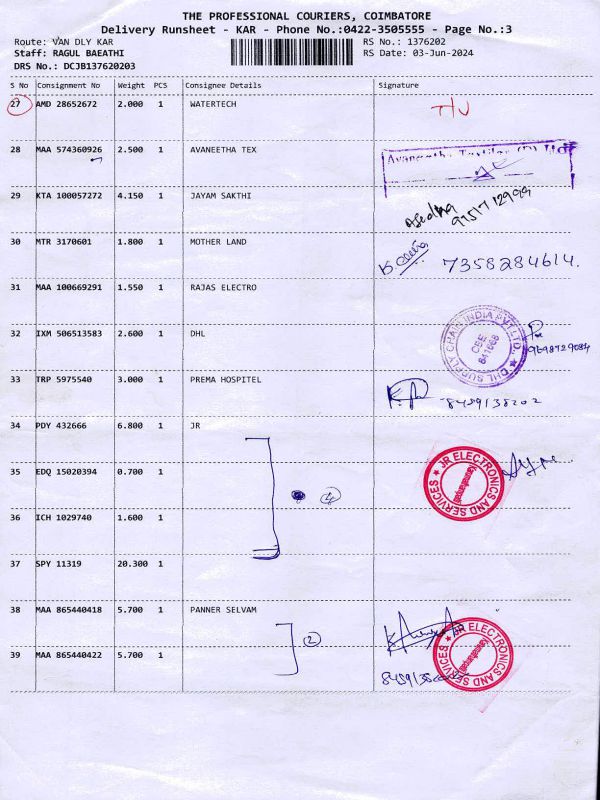 THE PROFESSIONAL COURIERS, COIMBATORE
Delivery Runsheet - KAR - Phone No.:0422-3505555 - Page No.:3
Route: VAN DLY KAR RS No.: 1376202
Staff: RAGUL BAEATHI RS Date: 03-Jun-2024
DRS No.: DCJB137620203
S No Consignment No Weight PCS Consignee Details Signature
27 AMD 28652672 2.000 1 WATERTECH
28 MAA 574360926 2.500 1 AVANEETHA TEX
Avaneetha Textiles (P) Ltd
29 KTA 100057272 4.150 1 JAYAM SAKTHI
30 MTR 3170601 1.800 1 MOTHER LAND
7358284614.
31 MAA 100669291 1.550 1 RAJAS ELECTRO
32 IXM 506513583 2.600 1 DHL
DHL SUPPLY CHAIN INDIA PVT LTD.,
CBE
641668
33 TRP 5975540 3.000 1 PREMA HOSPITEL
34 PDY 432666 6.800 1 JR
35 EDQ 15020394 0.700 1
4
JR ELECTRONICS AND SERVICES
36 ICH 1029740 1.600 1
37 SPY 11319 20.300 1
38 MAA 865440418 5.700 1 PANNER SELVAM
2
JR ELECTRONICS AND SERVICES
39 MAA 865440422 5.700 1